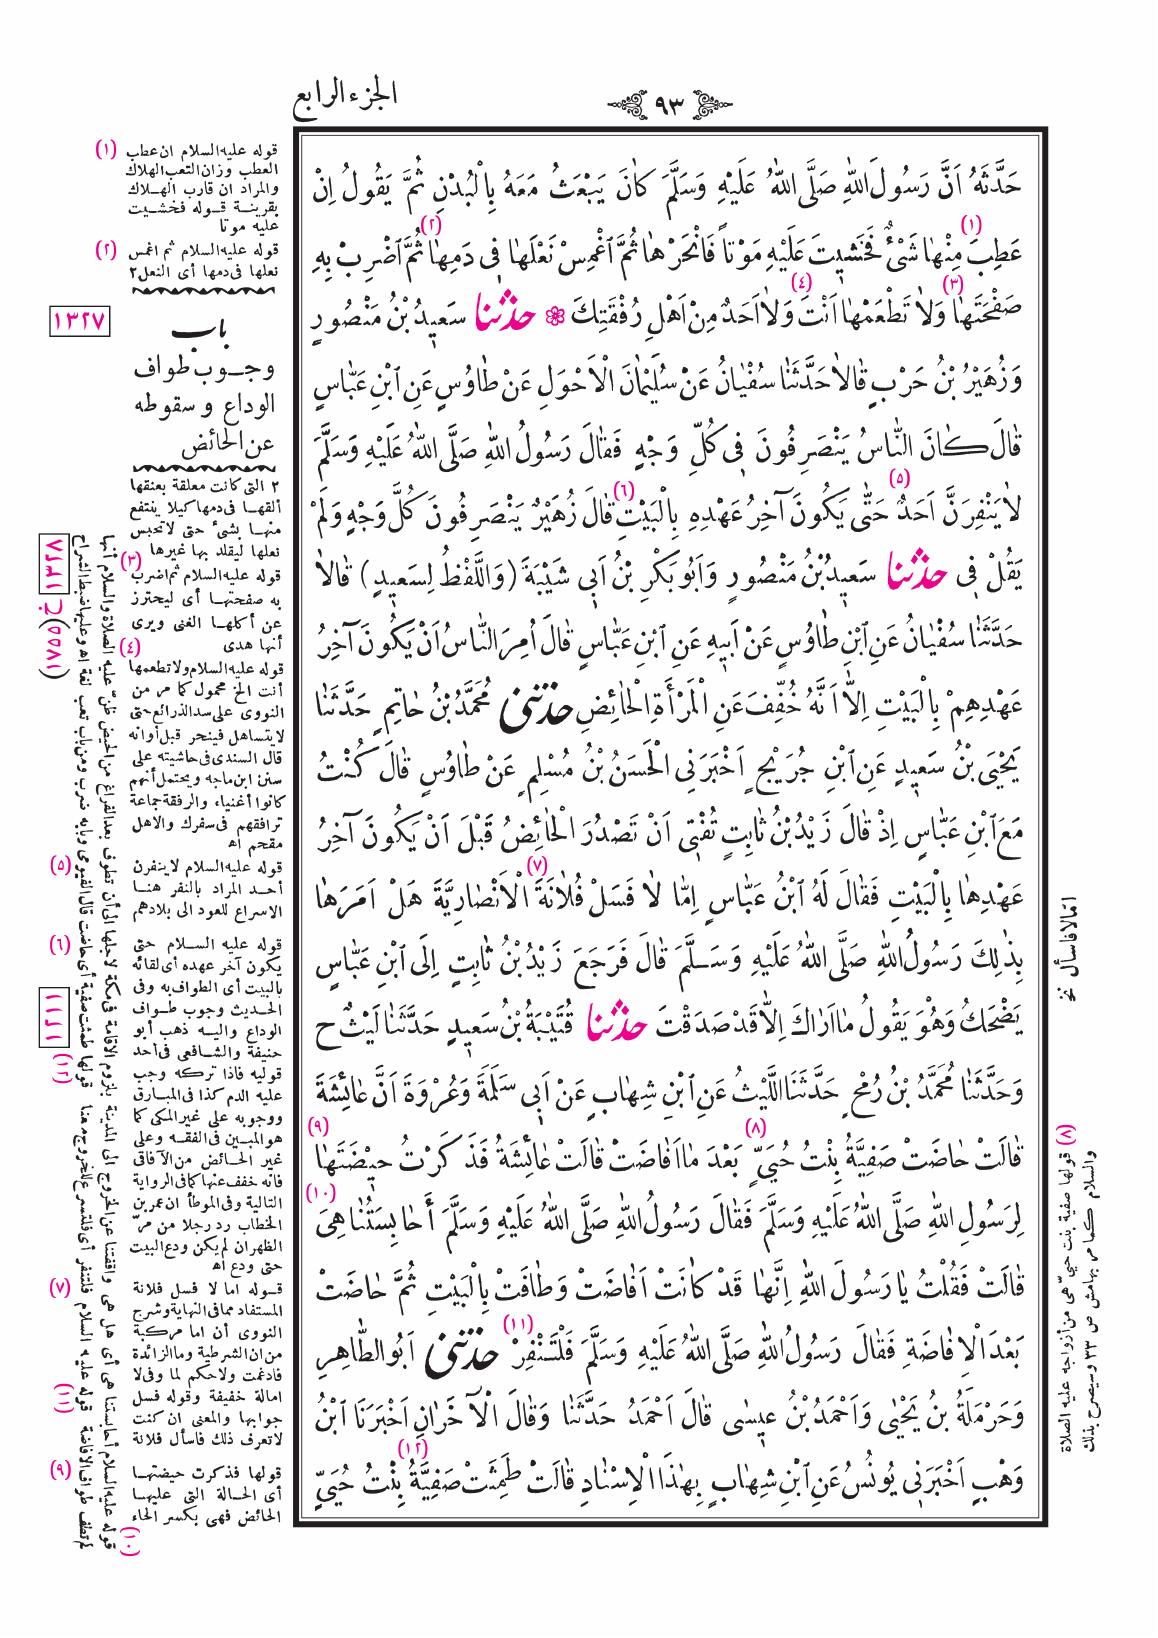 الجزء الرابع
٩٣
حَدَّثَهُ اَنَّ رَسُولَ اللهِ صَلَّى اللهُ عَلَيْهِ وَسَلَّمَ كَانَ يَبْعَثُ مَعَهُ بِالْبُدْنِ ثُمَّ يَقُولُ اِنْ
عَطِبَ (١) مِنْهَا شَيْءٌ فَخَشِيتَ عَلَيْهِ مَوْتاً فَانْحَرْهَا ثُمَّ اغْمِسْ نَعْلَهَا (٢) فِي دَمِهَا ثُمَّ اضْرِبْ بِهِ
صَفْحَتَهَا (٣) وَلَا تَطْعَمْهَا (٤) اَنْتَ وَلَا اَحَدٌ مِنْ اَهْلِ رُفْقَتِكَ ❁ حدثنا سَعِيدُ بْنُ مَنْصُورٍ
وَزُهَيْرُ بْنُ حَرْبٍ قَالَا حَدَّثَنَا سُفْيَانُ عَنْ سُلَيْمَانَ الْاَحْوَلِ عَنْ طَاوُسٍ عَنِ ابْنِ عَبَّاسٍ
قَالَ كَانَ النَّاسُ يَنْصَرِفُونَ فِي كُلِّ وَجْهٍ فَقَالَ رَسُولُ اللهِ صَلَّى اللهُ عَلَيْهِ وَسَلَّمَ
لَا يَنْفِرَنَّ اَحَدٌ (٥) حَتَّى يَكُونَ آخِرُ عَهْدِهِ بِالْبَيْتِ (٦) قَالَ زُهَيْرٌ يَنْصَرِفُونَ كُلَّ وَجْهٍ وَلَمْ
يَقُلْ فِي حدثنا سَعِيدُ بْنُ مَنْصُورٍ وَاَبُو بَكْرِ بْنُ اَبِي شَيْبَةَ (وَاللَّفْظُ لِسَعِيدٍ) قَالَا
حَدَّثَنَا سُفْيَانُ عَنِ ابْنِ طَاوُسٍ عَنْ اَبِيهِ عَنِ ابْنِ عَبَّاسٍ قَالَ اُمِرَ النَّاسُ اَنْ يَكُونَ آخِرُ
عَهْدِهِمْ بِالْبَيْتِ اِلَّا اَنَّهُ خُفِّفَ عَنِ الْمَرْأَةِ الْحَائِضِ حدثنى مُحَمَّدُ بْنُ حَاتِمٍ حَدَّثَنَا
يَحْيَى بْنُ سَعِيدٍ عَنِ ابْنِ جُرَيْجٍ اَخْبَرَنِي الْحَسَنُ بْنُ مُسْلِمٍ عَنْ طَاوُسٍ قَالَ كُنْتُ
مَعَ ابْنِ عَبَّاسٍ اِذْ قَالَ زَيْدُ بْنُ ثَابِتٍ تُفْتِي اَنْ تَصْدُرَ الْحَائِضُ قَبْلَ اَنْ يَكُونَ آخِرُ
عَهْدِهَا بِالْبَيْتِ فَقَالَ لَهُ ابْنُ عَبَّاسٍ اِمَّا لَا فَسَلْ فُلَانَةَ (٧) الْاَنْصَارِيَّةَ هَلْ اَمَرَهَا
بِذٰلِكَ رَسُولُ اللهِ صَلَّى اللهُ عَلَيْهِ وَسَلَّمَ قَالَ فَرَجَعَ زَيْدُ بْنُ ثَابِتٍ اِلَى ابْنِ عَبَّاسٍ
يَضْحَكُ وَهُوَ يَقُولُ مَا اَرَاكَ اِلَّا قَدْ صَدَقْتَ حدثنا قُتَيْبَةُ بْنُ سَعِيدٍ حَدَّثَنَا لَيْثٌ ح
وَحَدَّثَنَا مُحَمَّدُ بْنُ رُمْحٍ حَدَّثَنَا اللَّيْثُ عَنِ ابْنِ شِهَابٍ عَنْ اَبِي سَلَمَةَ وَعُرْوَةَ اَنَّ عَائِشَةَ
قَالَتْ حَاضَتْ صَفِيَّةُ بِنْتُ حُيَيٍّ (٨) بَعْدَ مَا اَفَاضَتْ قَالَتْ عَائِشَةُ فَذَكَرْتُ حِيضَتَهَا (٩)
لِرَسُولِ اللهِ صَلَّى اللهُ عَلَيْهِ وَسَلَّمَ فَقَالَ رَسُولُ اللهِ صَلَّى اللهُ عَلَيْهِ وَسَلَّمَ أَحَابِسَتُنَا هِيَ (١٠)
قَالَتْ فَقُلْتُ يَا رَسُولَ اللهِ اِنَّهَا قَدْ كَانَتْ اَفَاضَتْ وَطَافَتْ بِالْبَيْتِ ثُمَّ حَاضَتْ
بَعْدَ الْاِفَاضَةِ فَقَالَ رَسُولُ اللهِ صَلَّى اللهُ عَلَيْهِ وَسَلَّمَ فَلْتَنْفِرْ (١١) حدثنى اَبُو الطَّاهِرِ
وَحَرْمَلَةُ بْنُ يَحْيَى وَاَحْمَدُ بْنُ عِيسَى قَالَ اَحْمَدُ حَدَّثَنَا وَقَالَ الْآخَرَانِ اَخْبَرَنَا ابْنُ
وَهْبٍ اَخْبَرَنِي يُونُسُ عَنِ ابْنِ شِهَابٍ بِهٰذَا الْاِسْنَادِ قَالَتْ طَمِثَتْ (١٢) صَفِيَّةُ بِنْتُ حُيَيٍّ
(١) قوله عليه السلام ان عطب
العطب وزان التعب الهلاك
والمراد ان قارب الهلاك
بقرينة قوله فخشيت
عليه موتا
(٢) قوله عليه السلام ثم اغمس
نعلها فى دمها أى النعل ٢
١٣٢٧
باب
وجوب طواف
الوداع وسقوطه
عن الحائض
٢ التى كانت معلقة بعنقها
ألقهـا فى دمها كيلا ينتفع
منها بشئ حتى لا تحبس
نعلها ليقلد بها غيرها
(٣) قوله عليه السلام ثم اضرب
به صفحتها أى ليحترز
عن أكلها الغنى ويرى
أنها هدى
(٤) قوله عليه السلام ولا تطعمها
أنت الخ محمول كما مر من
النووى على سد الذرائع حتى
لا يتساهل فينحر قبل أوانه
قال السندى فى حاشيته على
سنن ابن ماجه ويحتمل أنهم
كانوا أغنياء والرفقة جماعة
ترافقهم فى سفرك والاهل
مقحم اه
(٥) قوله عليه السلام لا ينفرن
أحد المراد بالنفر هنا
الاسراع للعود الى بلادهم
(٦) قوله عليه السلام حتى
يكون آخر عهده أى لقائه
بالبيت أى الطواف به وفى
الحديث وجوب طواف
الوداع واليه ذهب أبو
حنيفة والشافعى فى أحد
قوليه فاذا تركه وجب
عليه الدم كذا فى المبارق
ووجوبه على غير المكى كما
هو المبين فى الفقه وعلى
غير الحائض من الآفاقى
فانه خفف عنها كما فى الرواية
التالية وفى الموطأ ان عمر بن
الخطاب رد رجلا من مرّ
الظهران لم يكن ودع البيت
حتى ودع اه
(٧) قوله اما لا فسل فلانة
المستفاد مما فى النهاية وشرح
النووى أن اما مركبة
من ان الشرطية وما الزائدة
فادغمت ولا حكم لما وفى لا
امالة خفيفة وقوله فسل
جوابها والمعنى ان كنت
لا تعرف ذلك فاسأل فلانة
(٩) قولها فذكرت حيضتها
أى الحالة التى عليها
الحائض فهى بكسر الحاء
(١٠) قوله عليه السلام أحابستنا هى أى هل هى واقفتنا عن الخروج الى المدينة بلزوم الاقامة فى مكة لاجلها الى أن تطوف بعد الفراغ من الحيض ظن عليه الصلاة والسلام أنها
لم تطف طواف الافاضة (١١) قوله عليه السلام فلتنفر أى فلتسرع للخروج من هنا (١٢) قولها طمثت صفية أى حاضت قال الفيومى وبابه ضرب ومن باب تعب لغة اه وعليها ضبط الشراح
١٢١١
امّا لا فاسأل نخ
(٨) قولها صفية بنت حييّ هى من أزواجه عليه الصلاة
والسلام كما مر بهامش ص ٣٣ وسيصرح بذلك